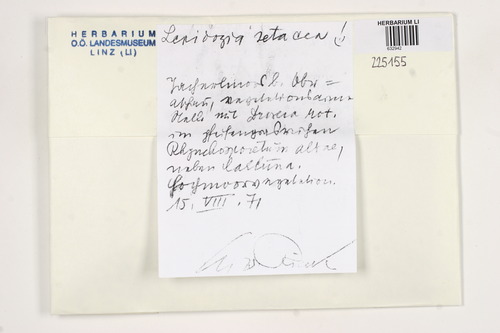 HERBARIUM
O.Ö. LANDESMUSEUM
LINZ (LI)
Lepidozia setacea !
HERBARIUM LI
632942
225155
b. Ober=
vegetationsarme
Stelle mit Drosera rot.
im
Rhynchosporetum albae,
neben Calluna.
Hochmoorvegetation.
15. VIII. 71